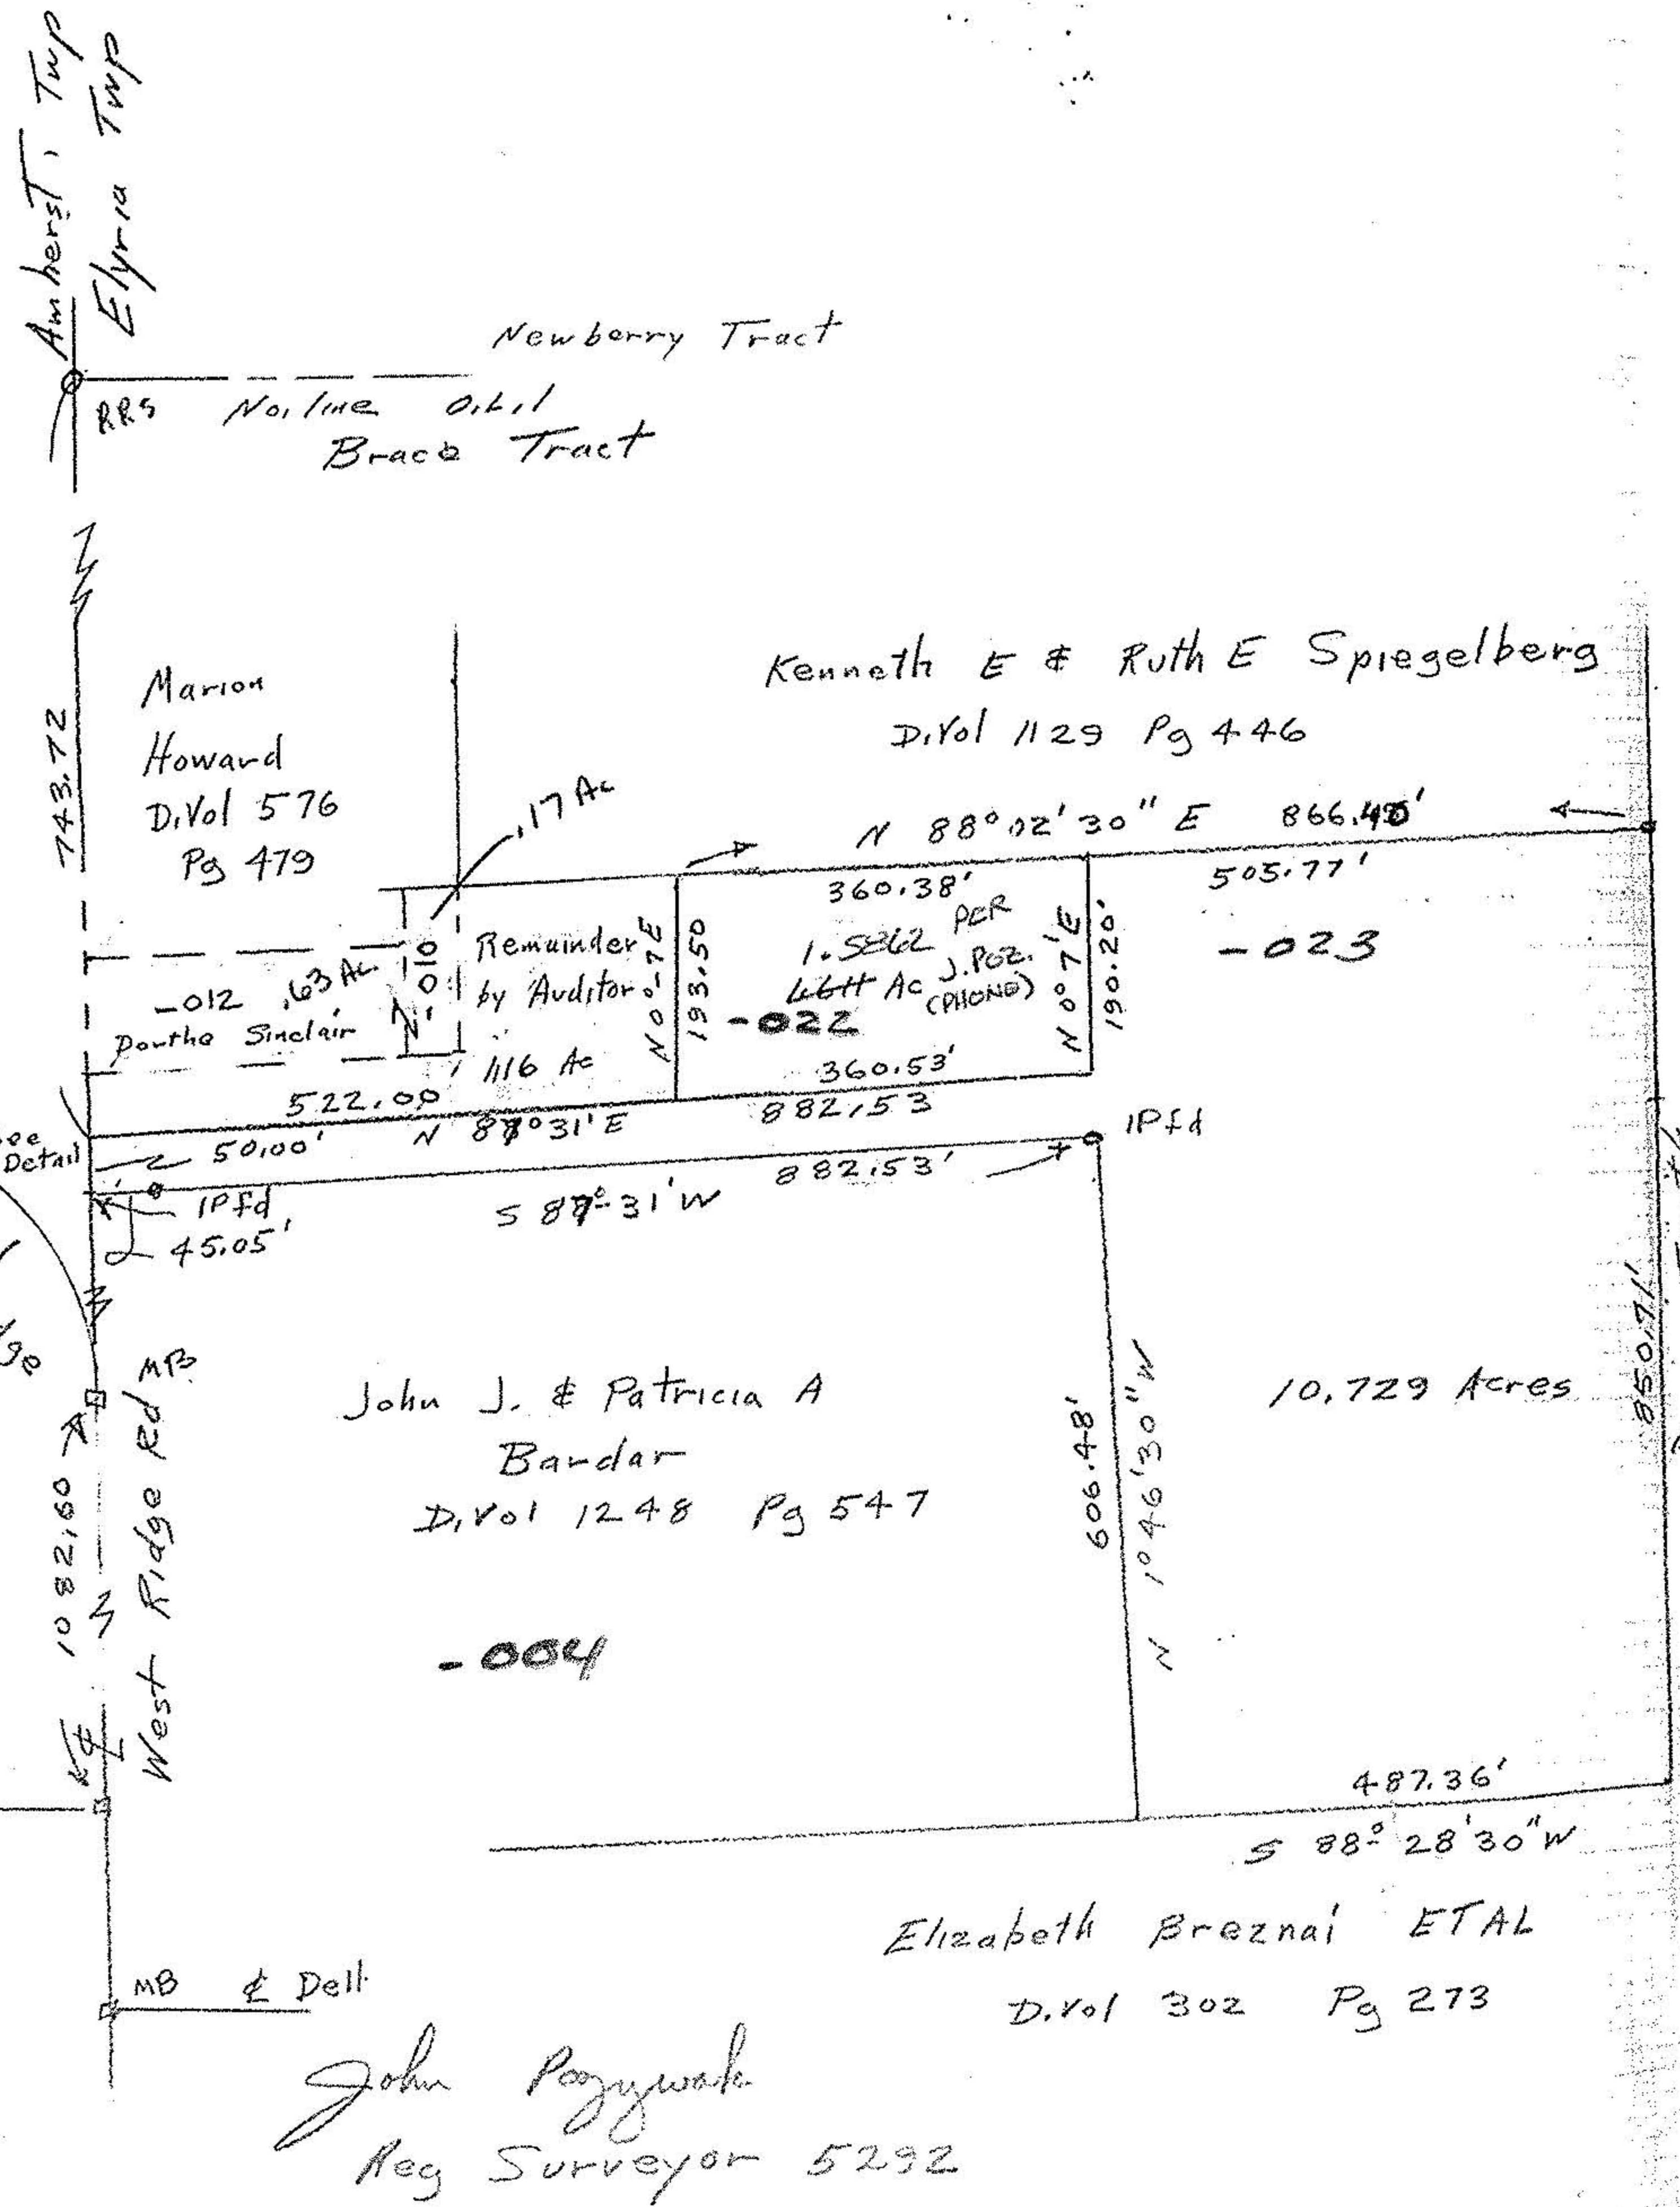 Amherst. Twp
Elyria Twp
Newberry Tract
RRS No. line O.L.1
Brace Tract
743.72
Marion
Howard
D.Vol 576
Pg 479
Kenneth E & Ruth E Spiegelberg
D.Vol 1129 Pg 446
.17 Ac
N 88° 02' 30" E 866.40'
360.38'
505.77'
-012 .63 Ac
Sinclair
-010
Remainder
by Auditor
1.16 Ac
N 0°-7'E
193.50
1.5862 PER
Ac J. POZ.
(PHONE)
-022
N 0° 7' E
190.20'
-023
360.53'
522.00
N 87° 31' E
882.53
See
Detail
50.00'
IPfd
IPfd
45.05'
S 87° 31' W
882.53'
MB
West Ridge Rd
1082.60
John J. & Patricia A
Bandar
D.Vol 1248 Pg 547
-004
606.48'
N 1° 46' 30" W
10.729 Acres
850.71'
487.36'
S 88° 28' 30" W
Elizabeth Breznai ETAL
D.Vol 302 Pg 273
MB ℄ Dell
John Pozywak
Reg Surveyor 5292